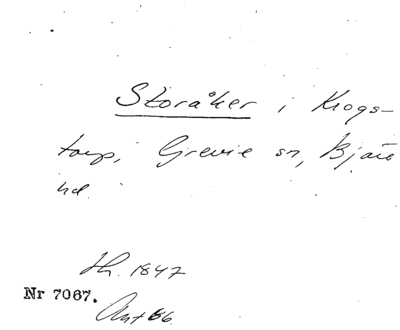 Storåker i Krogs-
torp, Grevie sn, Bjäre
hd.
Jh. 1847
Nr 7067.
Ant 86